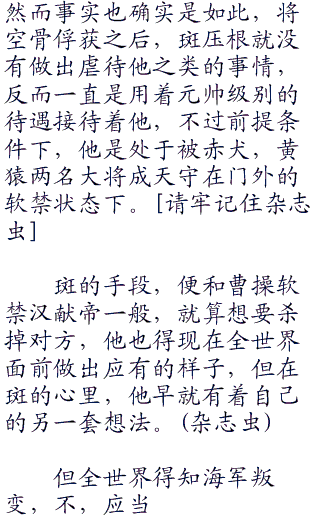 然而事实也确实是如此，将
空骨俘获之后，斑压根就没
有做出虐待他之类的事情，
反而一直是用着元帅级别的
待遇接待着他，不过前提条
件下，他是处于被赤犬，黄
猿两名大将成天守在门外的
软禁状态下。[请牢记住杂志
虫]
斑的手段，便和曹操软
禁汉献帝一般，就算想要杀
掉对方，他也得现在全世界
面前做出应有的样子，但在
斑的心里，他早就有着自己
的另一套想法。(杂志虫)
但全世界得知海军叛
变，不，应当